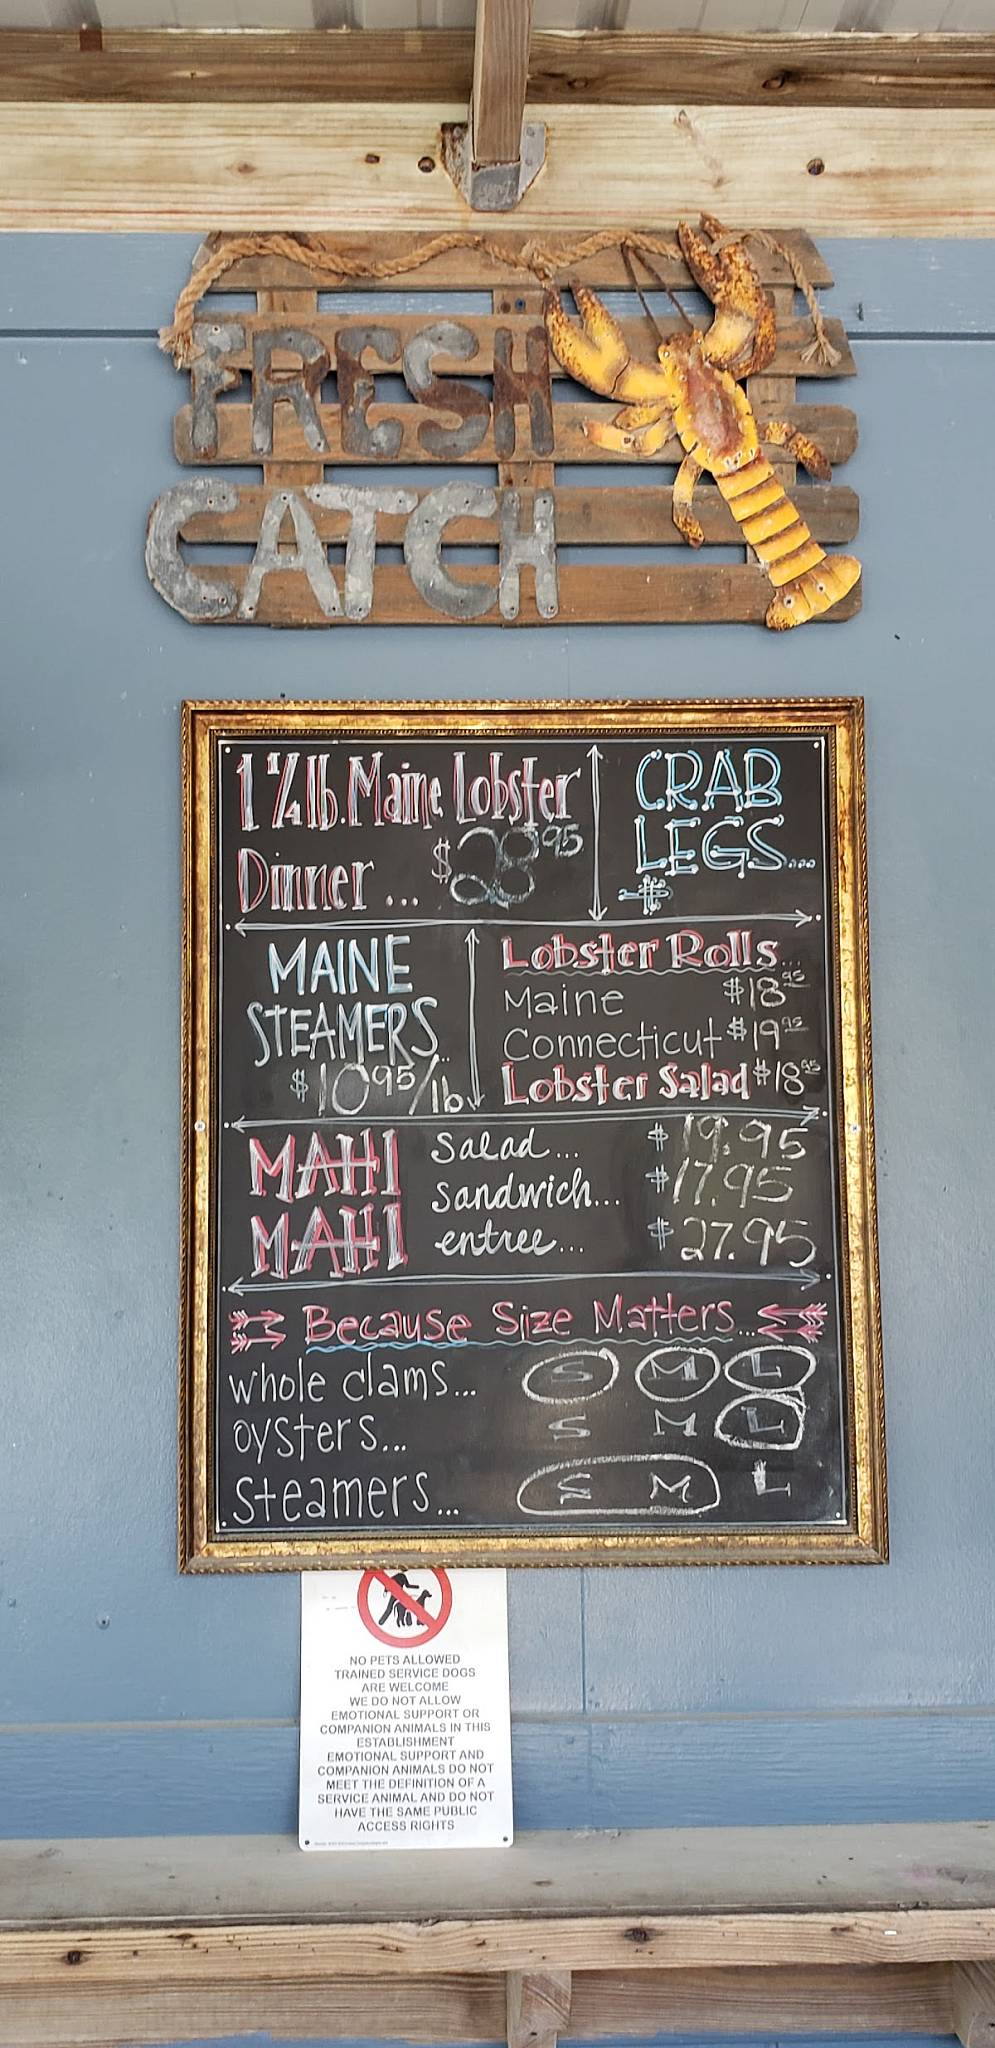 FRESH
CATCH
1 1/4 lb. Maine Lobster
Dinner ... $28.95
CRAB
LEGS...
$
MAINE
STEAMERS...
$10.95/lb
Lobster Rolls...
Maine $18.95
Connecticut $19.95
Lobster Salad $18.95
MAHI
MAHI
Salad... $19.95
Sandwich... $17.95
entree... $27.95
Because Size Matters...
whole clams... S M L
oysters... S M L
steamers... S M L
NO PETS ALLOWED
TRAINED SERVICE DOGS
ARE WELCOME
WE DO NOT ALLOW
EMOTIONAL SUPPORT OR
COMPANION ANIMALS IN THIS
ESTABLISHMENT
EMOTIONAL SUPPORT AND
COMPANION ANIMALS DO NOT
MEET THE DEFINITION OF A
SERVICE ANIMAL AND DO NOT
HAVE THE SAME PUBLIC
ACCESS RIGHTS